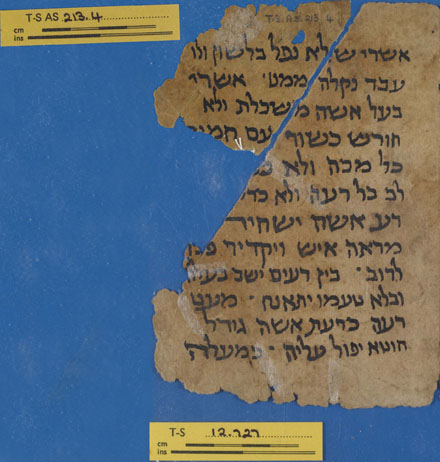 T-S AS 213.4
cm
ins
T-S AS 213 4
אשרי שלא נפל בלשון ולו
עבד נקלה ממנו אשרי
בעל אשה משכלת ולא
חורש כשור עם חמור
כל מכה ולא
לב כל רעה ולא
רע אשה ישחיר
מראה איש ויקדיר
לדוב בין רעים ישב בעלה
ובלא טעמו יתאנח מעט
רעה כרעת אשה גורל
חוטא יפול עליה כמעלה
T-S 12.727
cm
ins